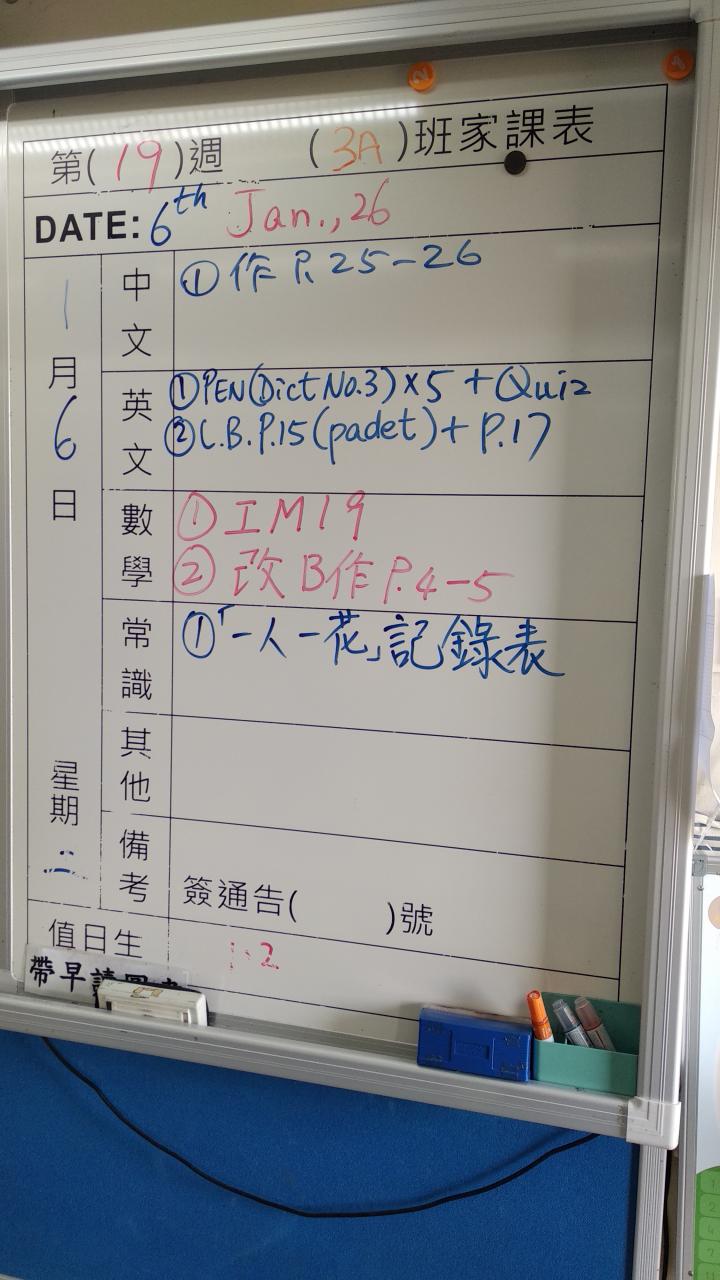 第(19)週 (3A)班家課表
DATE: 6th Jan., 26
1月6日 星期二
中文
①作 P. 25-26
英文
①PEN(Dict No.3)×5 + Quiz
②C.B.P.15(padet)+ P.17
數學
①工M19
②改B作P.4-5
常識
①「一人一花」記錄表
其他
備考
簽通告( )號
值日生
帶早讀